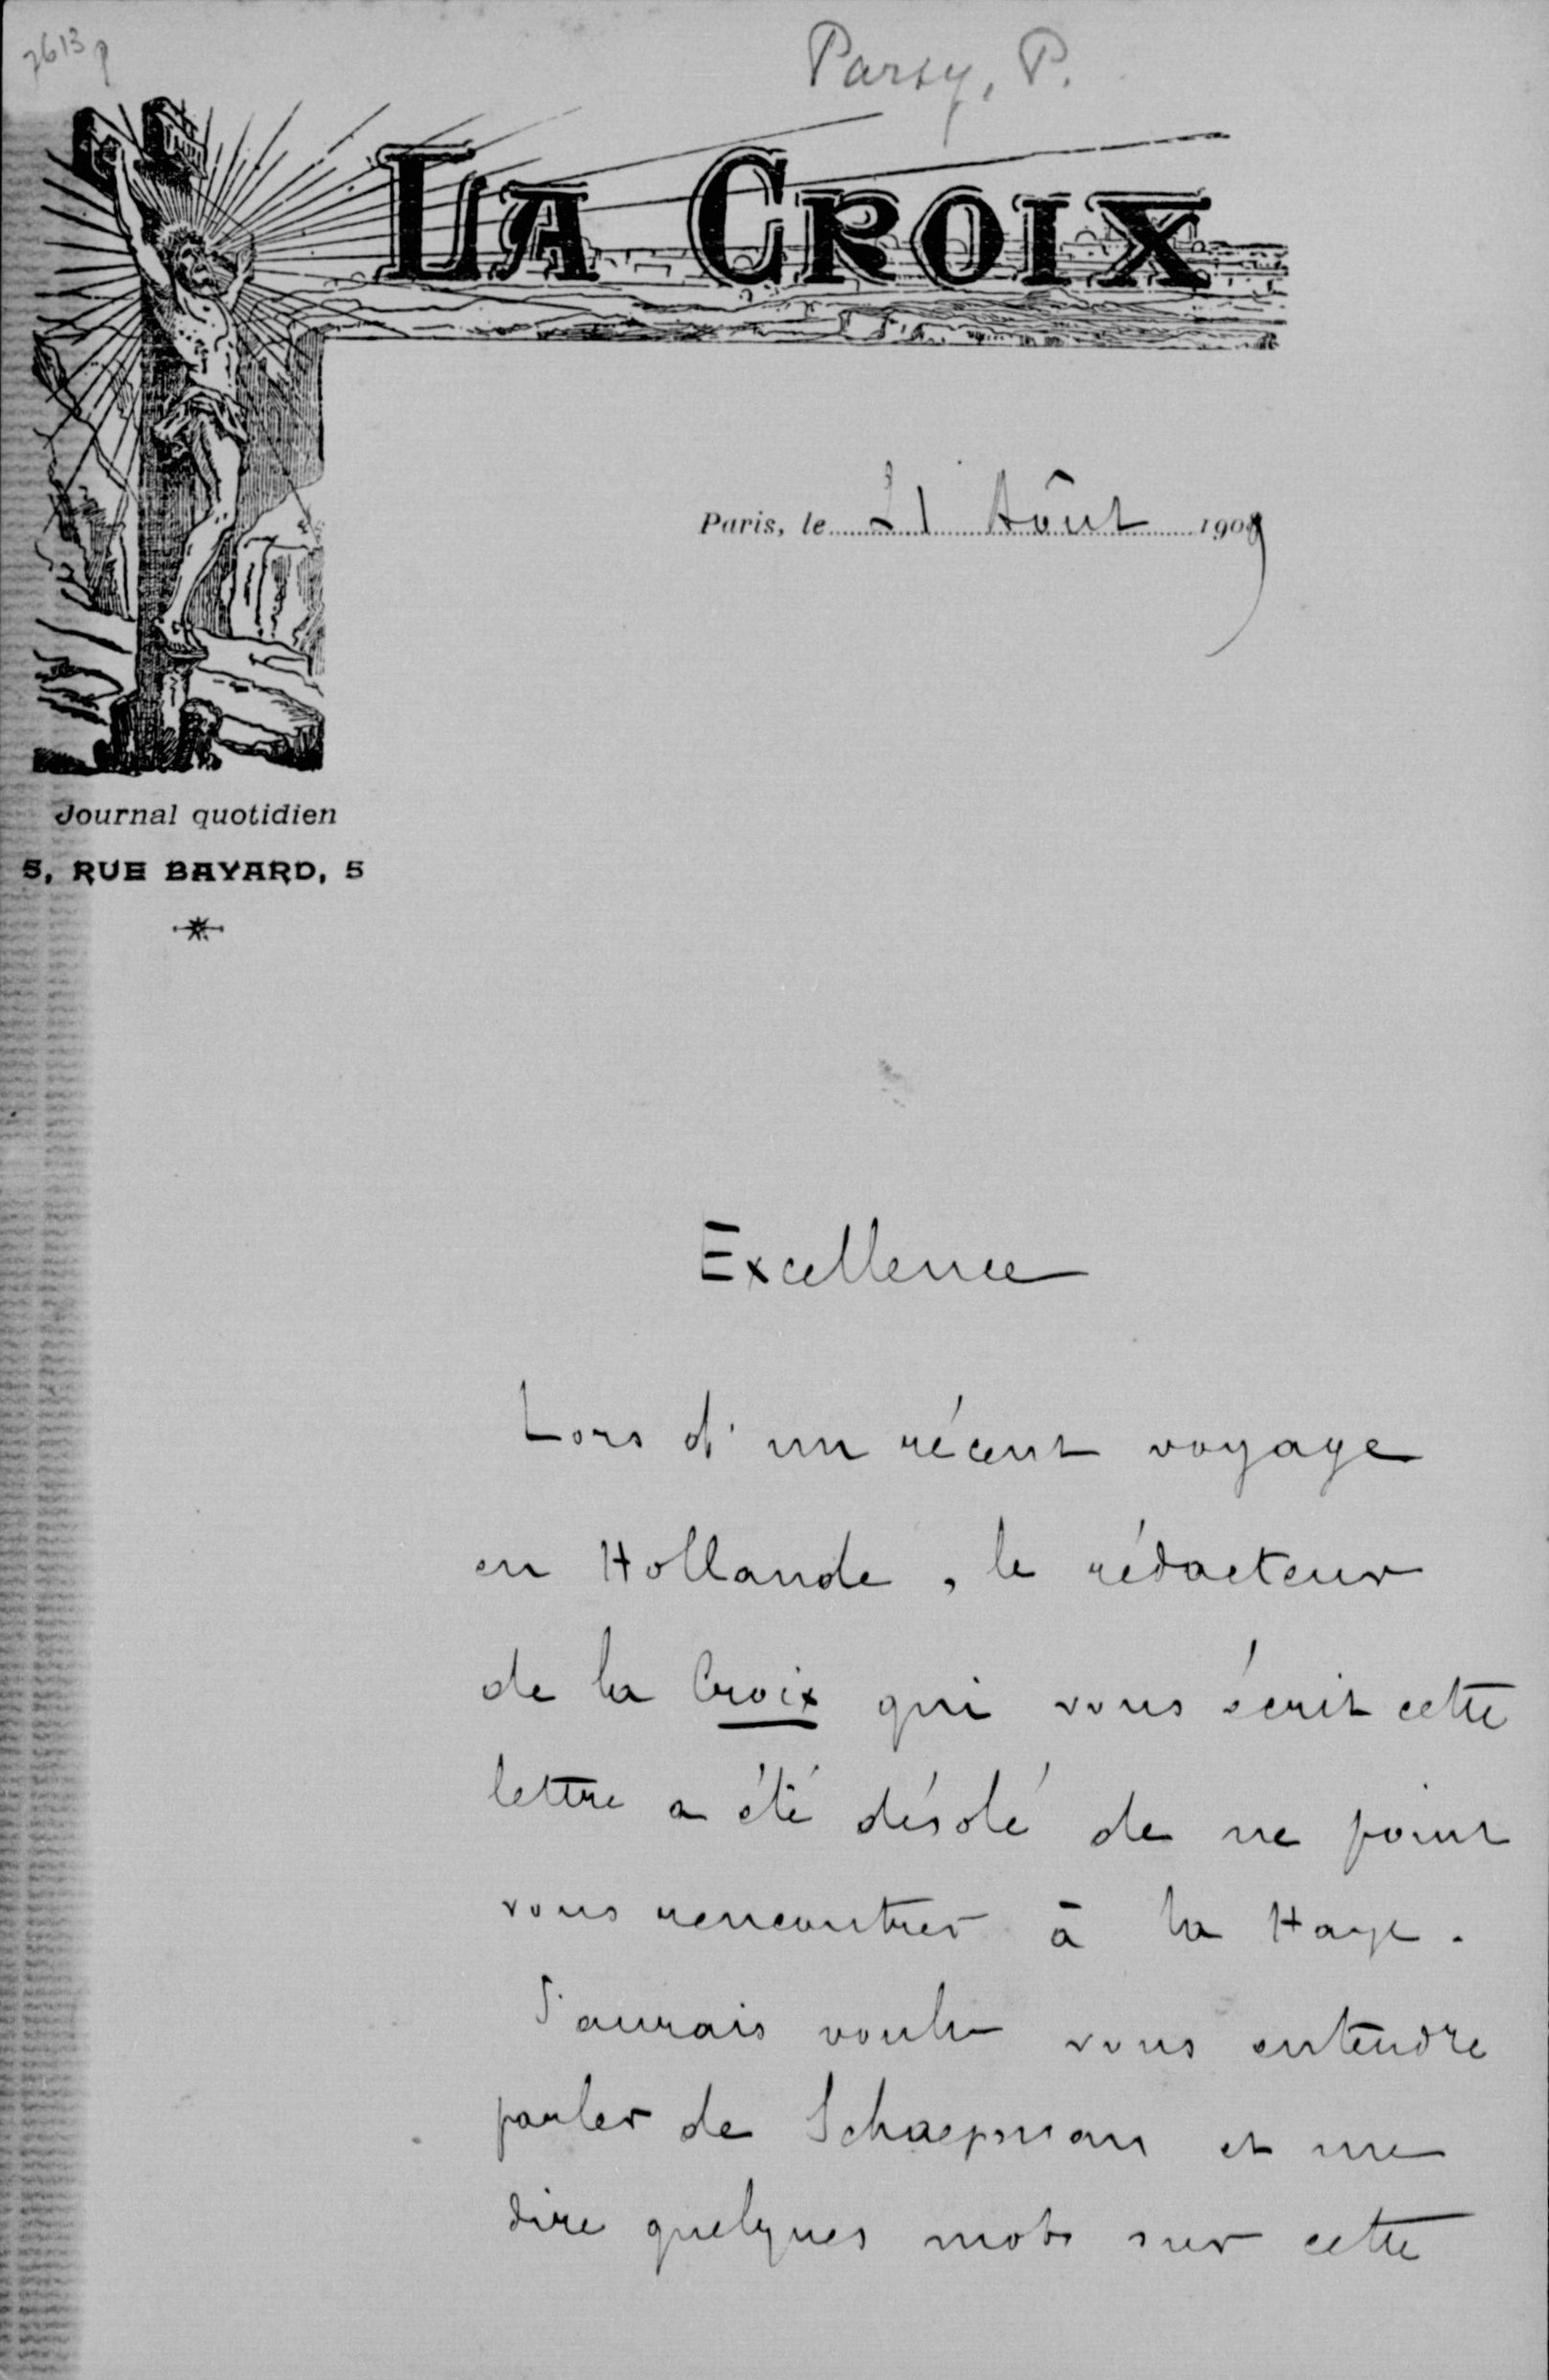 7613 p
Parsy, P.
LA CROIX
Paris, le 21 Aôut 1909
Journal quotidien
5, RUE BAYARD, 5
Excellence
Lors d'un récent voyage
en Hollande, le rédacteur
de la Croix qui vous écrit cette
lettre a été désolé de ne point
vous rencontrer à la Haye.
J'aurais voulu vous entendre
parler de Schaepman et me
dire quelques mots sur cette